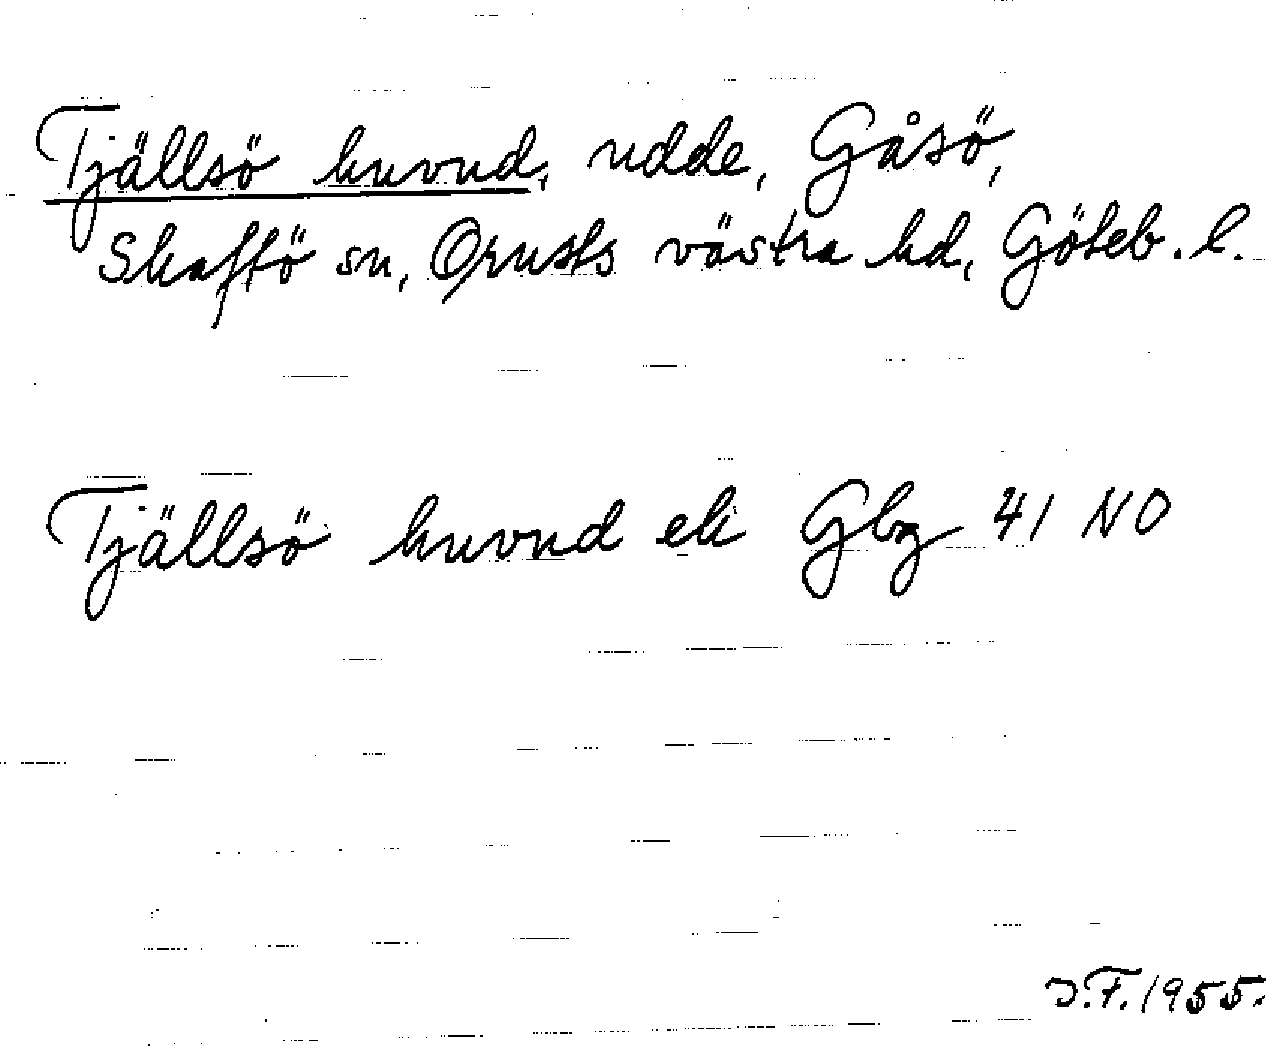 Tjällsö huvud, udde, Gåsö,
Skaftö sn, Orusts västra hd, Göteb. l.
Tjällsö huvud ek Gbg 41 NO
J.F. 1955.